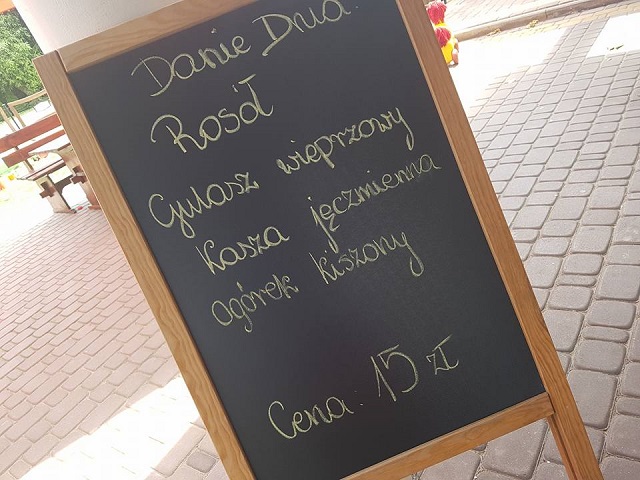 Danie Dnia:
Rosół
Gulasz wieprzowy
Kasza jęczmienna
ogórek kiszony
Cena: 15 zł